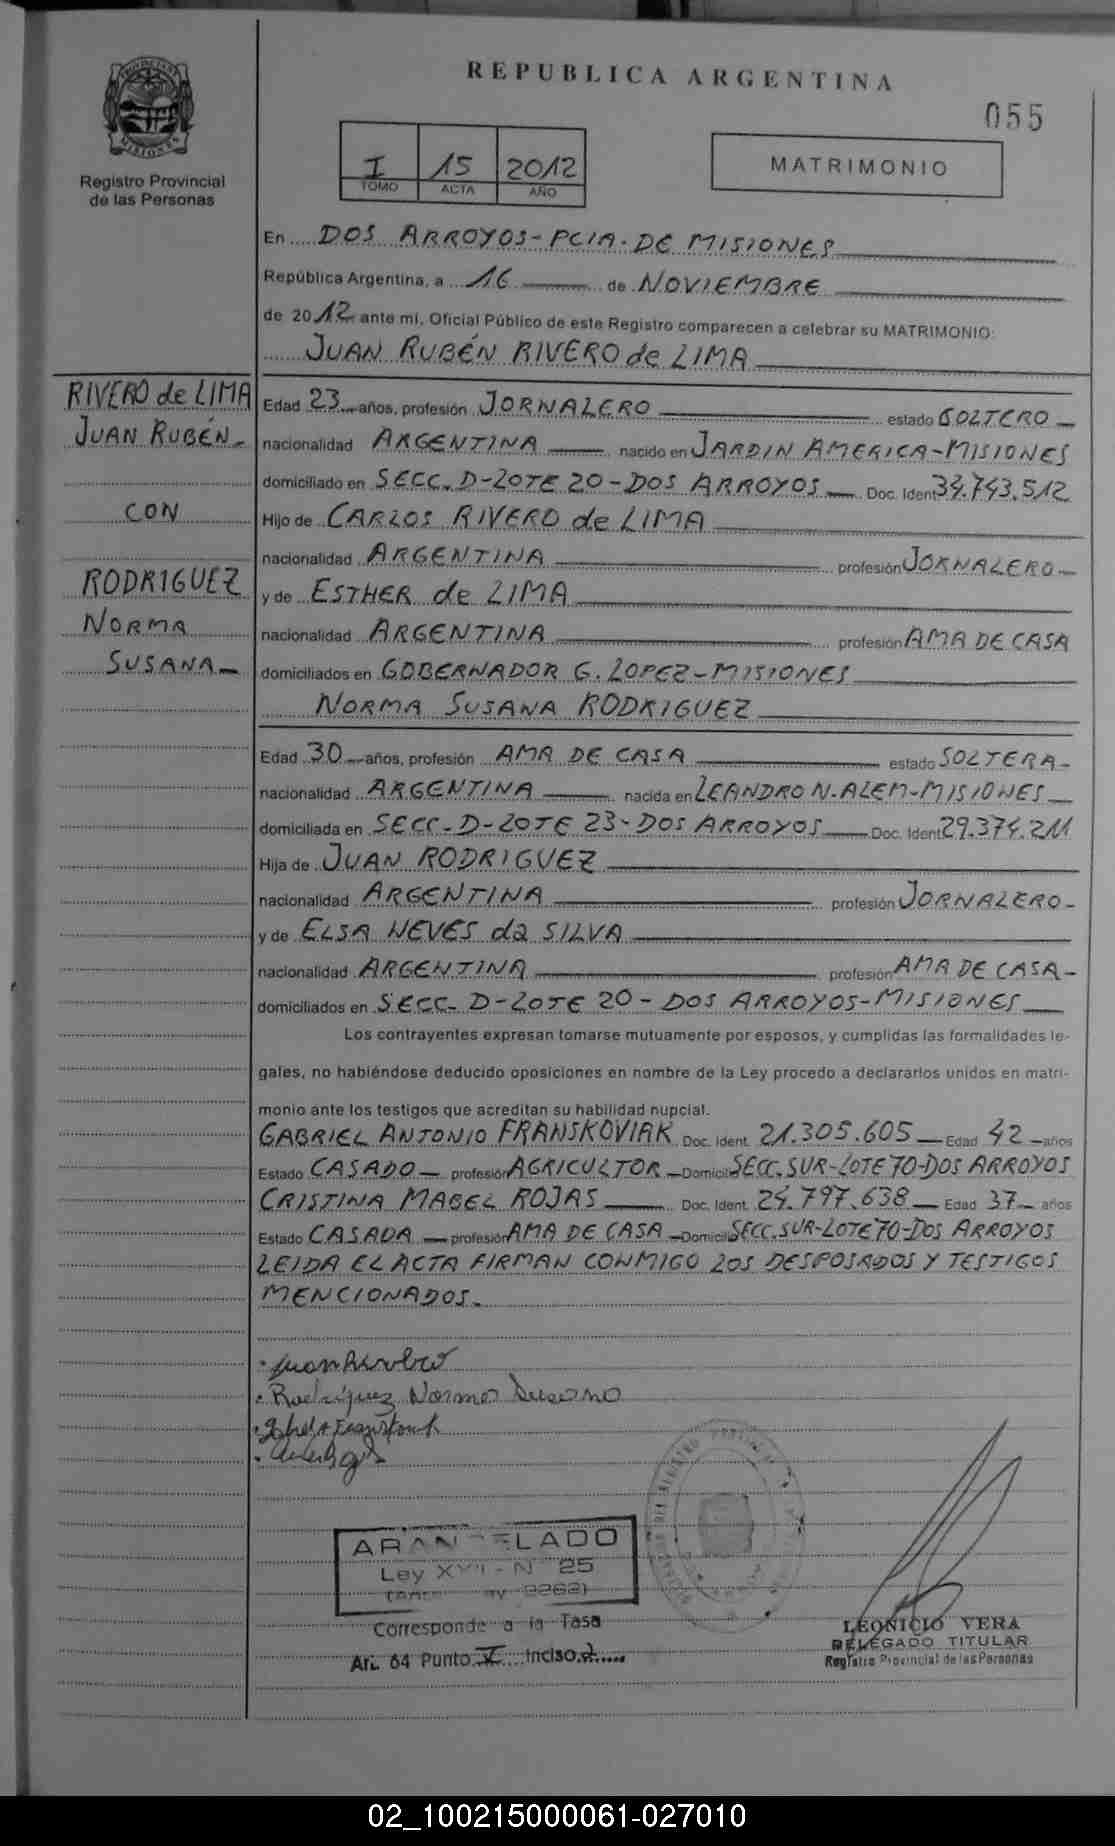 REPUBLICA ARGENTINA
055
PROVINCIA DE MISIONES
Registro Provincial
de las Personas
I 15 2012
TOMO ACTA AÑO
MATRIMONIO
En DOS ARROYOS-PCIA. DE MISIONES
República Argentina, a 16 de NOVIEMBRE
de 2012 ante mi, Oficial Público de este Registro comparecen a celebrar su MATRIMONIO:
JUAN RUBÉN RIVERO de LIMA
RIVERO de LIMA
JUAN RUBÉN-
CON
RODRIGUEZ
NORMA
SUSANA-
Edad 23 años, profesión JORNALERO estado SOLTERO
nacionalidad ARGENTINA nacido en JARDIN AMERICA-MISIONES
domiciliado en SECC. D-LOTE 20-DOS ARROYOS Doc. Ident 34.743.512
Hijo de CARLOS RIVERO de LIMA
nacionalidad ARGENTINA profesión JORNALERO
y de ESTHER de LIMA
nacionalidad ARGENTINA profesión AMA DE CASA
domiciliados en GOBERNADOR G. LOPEZ-MISIONES
NORMA SUSANA RODRIGUEZ
Edad 30 años, profesión AMA DE CASA estado SOLTERA-
nacionalidad ARGENTINA nacida en LEANDRO N. ALEM-MISIONES
domiciliada en SECC-D-LOTE 23-DOS ARROYOS Doc. Ident 29.374.211
Hija de JUAN RODRIGUEZ
nacionalidad ARGENTINA profesión JORNALERO-
y de ELSA NEVES da SILVA
nacionalidad ARGENTINA profesión AMA DE CASA-
domiciliados en SECC- D-LOTE 20-DOS ARROYOS-MISIONES
Los contrayentes expresan tomarse mutuamente por esposos, y cumplidas las formalidades le-
gales, no habiéndose deducido oposiciones en nombre de la Ley procedo a declararlos unidos en matri-
monio ante los testigos que acreditan su habilidad nupcial.
GABRIEL ANTONIO FRANSKOVIAK Doc. Ident. 21.305.605 Edad 42 años
Estado CASADO profesión AGRICULTOR Domicil SECC. SUR-LOTE 70-DOS ARROYOS
CRISTINA MABEL ROJAS Doc. Ident. 24.797.638 Edad 37 años
Estado CASADA profesión AMA DE CASA Domicil SECC. SUR-LOTE 70-DOS ARROYOS
LEIDA EL ACTA FIRMAN CONMIGO LOS DESPOSADOS Y TESTIGOS
MENCIONADOS.
Rodríguez Norma Susana
ARANCELADO
Ley XVI - N° 25
Corresponde a la Tasa
Art. 64 Punto I Inciso 2
LEONICIO VERA
DELEGADO TITULAR
Registro Provincial de las Personas
02_100215000061-027010